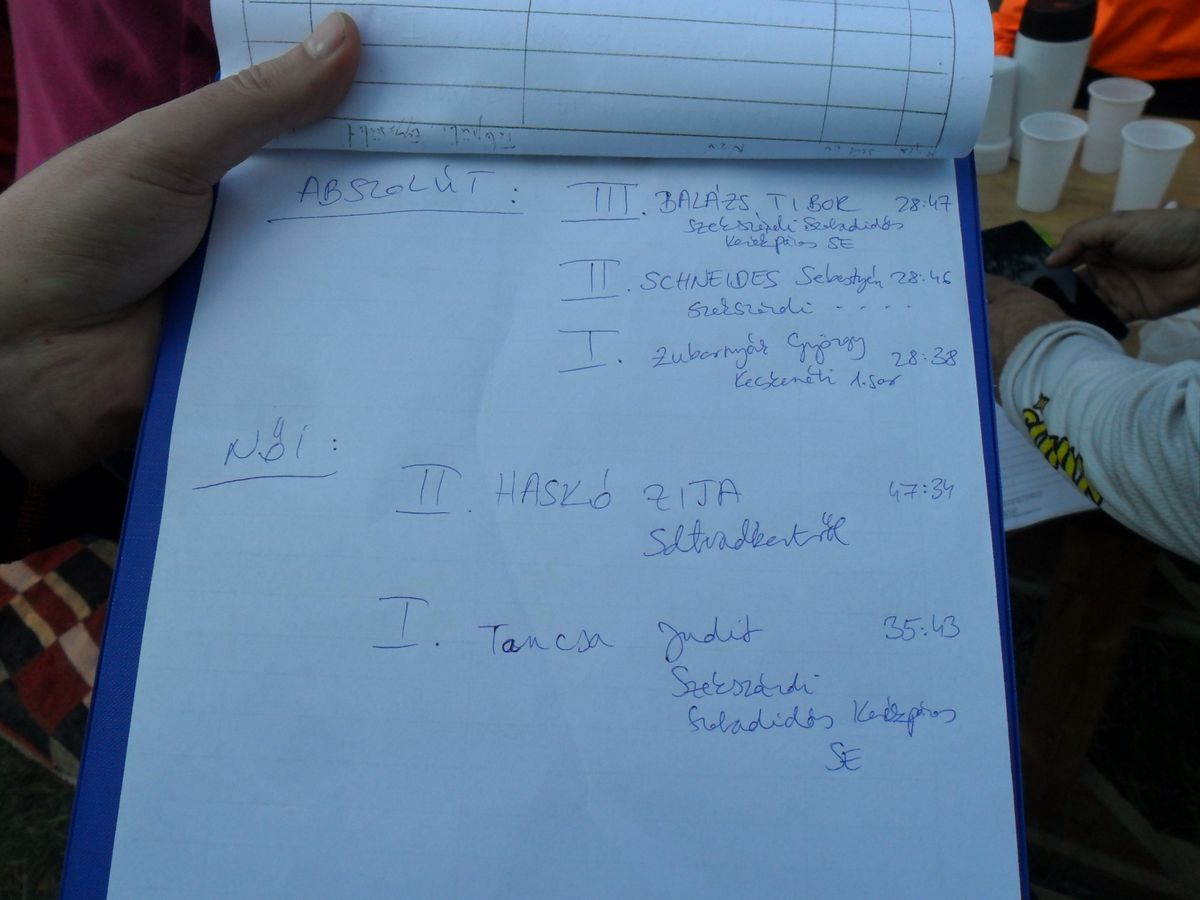 ABSZOLÚT :
III. BALÁZS TIBOR 28:47
Szekszárdi Szabadidős
Kerékpáros SE
II. SCHNEIDES Sebestyén 28:46
Szekszárdi - . . .
I. Zubornyák György 28:38
Kecskeméti 1.sor
NŐI :
II. HASKÓ ZITA 47:34
Soltvadkertről
I. Tancsa Judit 35:43
Szekszárdi
Szabadidős Kerékpáros
SE